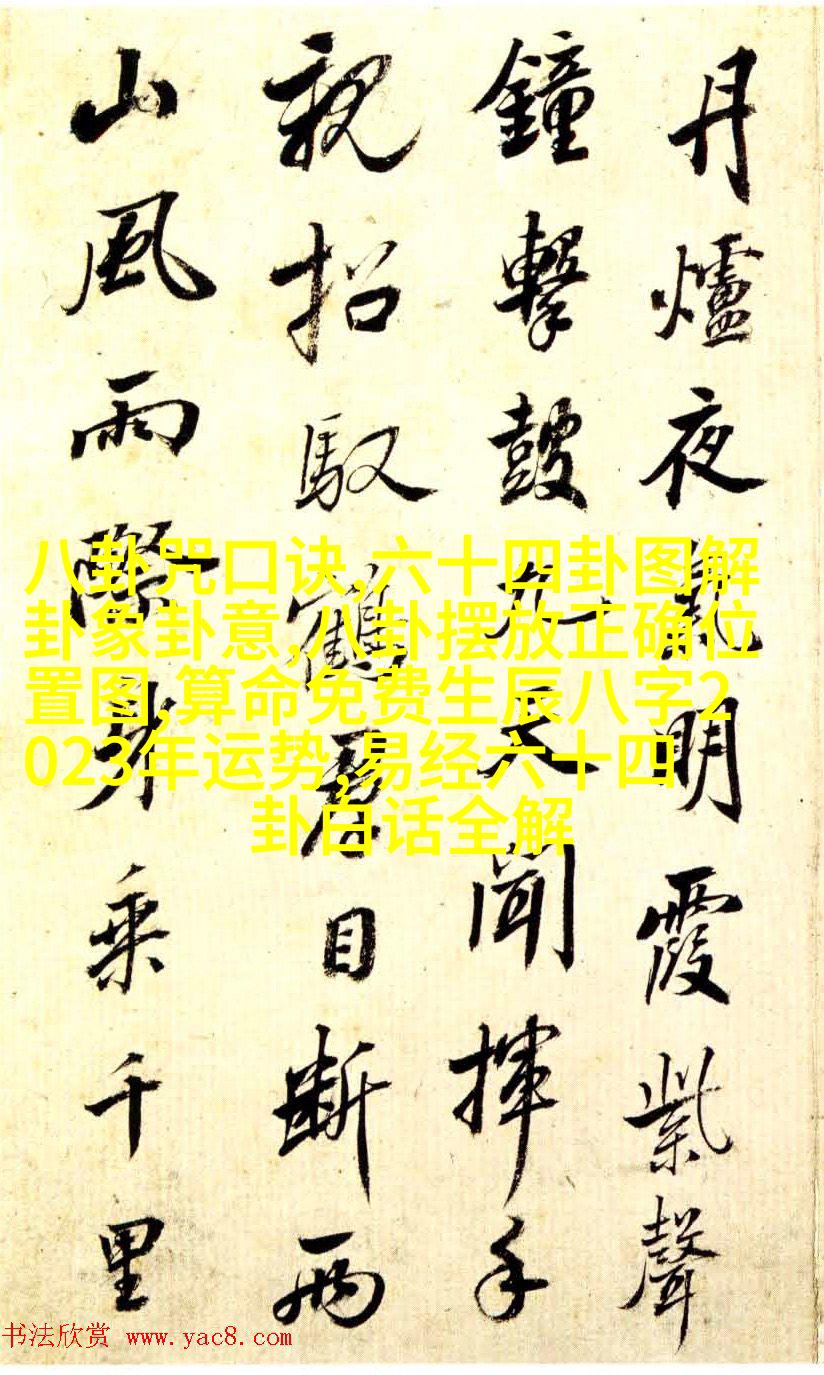 丹爐夜氣明霞紫聲
鐘擊鼓九天聞揮手
親招馭鶴君目斷兩
山風雨際身乘千里
八卦咒口诀,六十四卦图解
卦象卦意,八卦摆放正确位
置图,算命免费生辰八字2
023年运势,易经六十四
卦白话全解
书法欣赏 www.yac8.com